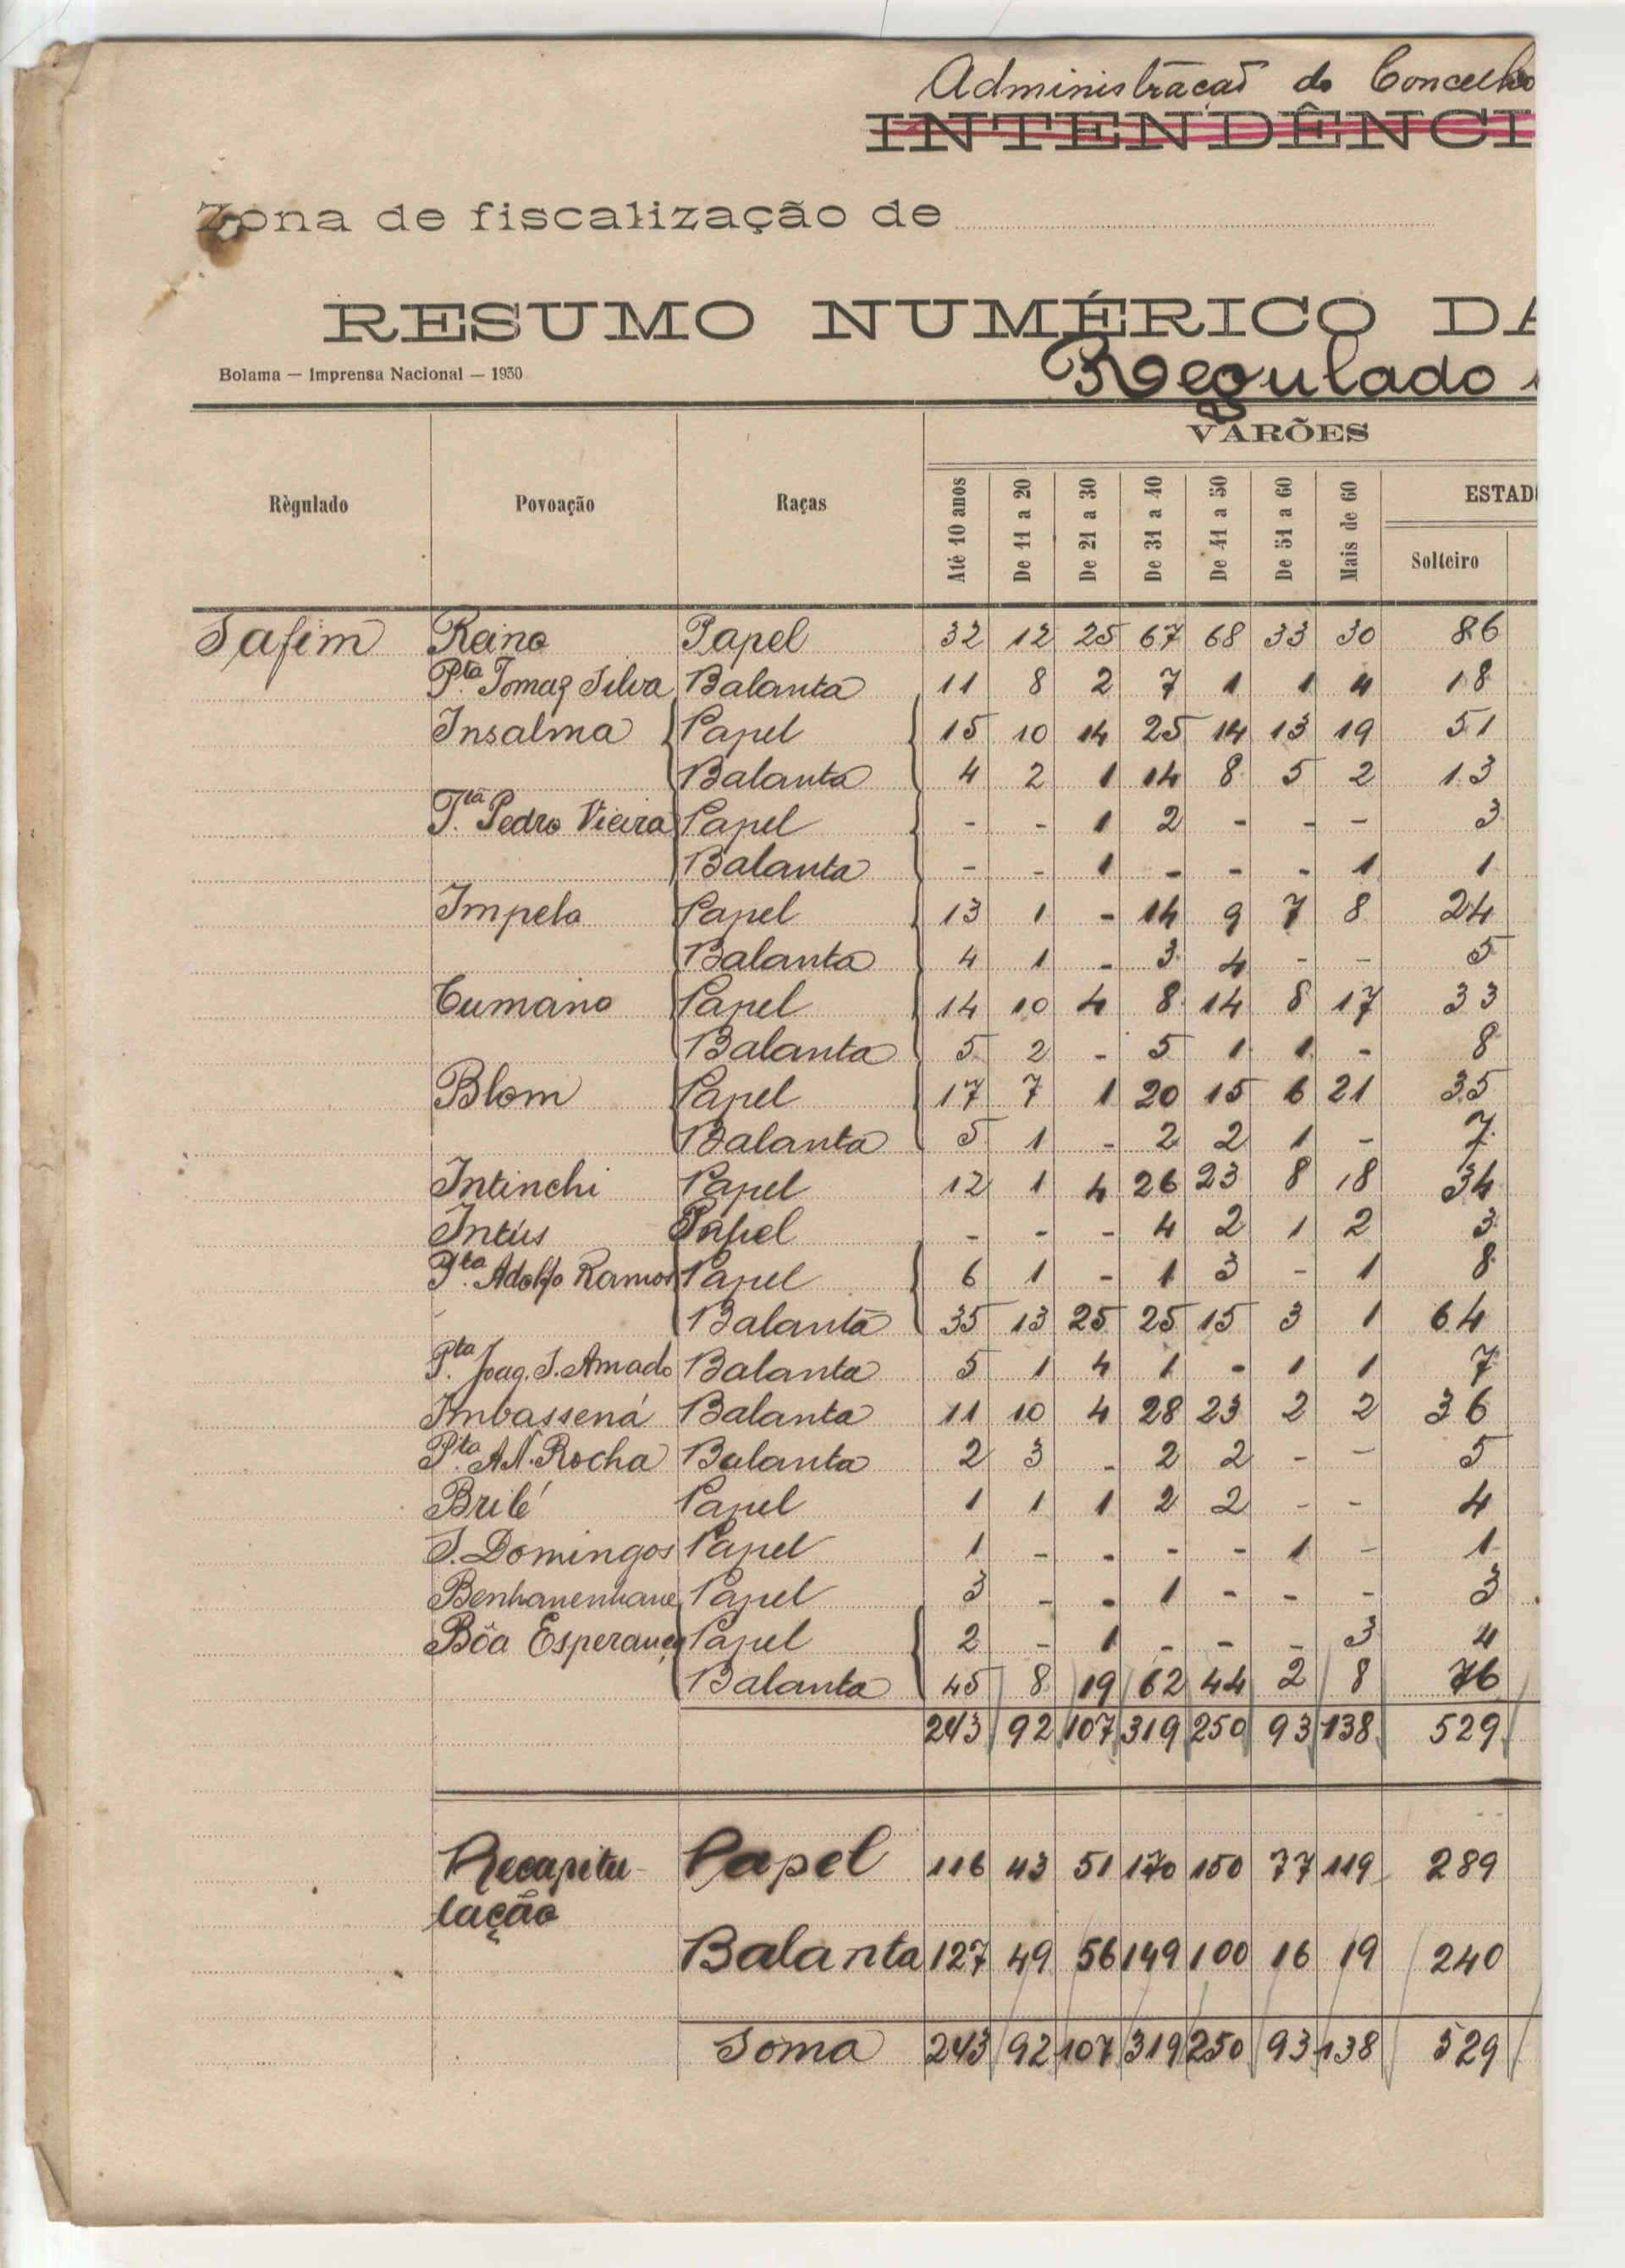 Administração do Concelho
INTENDÊNCI
Zona de fiscalização de
RESUMO NUMÉRICO DA
Bolama — Imprensa Nacional — 1930
Regulado
VARÕES
Règulado Povoação Raças Até 10 anos De 11 a 20 De 21 a 30 De 31 a 40 De 41 a 50 De 51 a 60 Mais de 60 ESTAD
Solteiro
Safim Reino Papel 32 12 25 67 68 33 30 86
Pta. Tomaz Silva Balanta 11 8 2 7 1 1 4 18
Insalma Papel 15 10 14 25 14 13 19 51
Balanta 4 2 1 14 8 5 2 13
Pta. Pedro Vieira Papel - - 1 2 - - - 3
Balanta - - 1 - - - 1 1
Impelo Papel 13 1 - 14 9 7 8 24
Balanta 4 1 - 3 4 - - 5
Cumano Papel 14 10 4 8 14 8 17 33
Balanta 5 2 - 5 1 1 - 8
Blom Papel 17 7 1 20 15 6 21 35
Balanta 5 1 - 2 2 1 - 7
Intinchi Papel 12 1 4 26 23 8 18 34
Intús Papel - - - 4 2 1 2 3
Pta. Adolfo Ramos Papel 6 1 - 1 3 - 1 8
Balanta 35 13 25 25 15 3 1 64
Pta. Joaq. S. Amado Balanta 5 1 4 1 - 1 1 7
Imbassená Balanta 11 10 4 28 23 2 2 36
Pta. A.N. Rocha Balanta 2 3 - 2 2 - - 5
Brilé Papel 1 1 1 2 2 - - 4
S. Domingos Papel 1 - - - - 1 - 1
Benhanenhane Papel 3 - - 1 - - - 3
Bôa Esperança Papel 2 - 1 - - - 3 4
Balanta 45 8 19 62 44 2 8 76
243 92 107 319 250 93 138 529
Recapitu- Papel 116 43 51 170 150 77 119 289
lação
Balanta 127 49 56 149 100 16 19 240
Soma 243 92 107 319 250 93 138 529